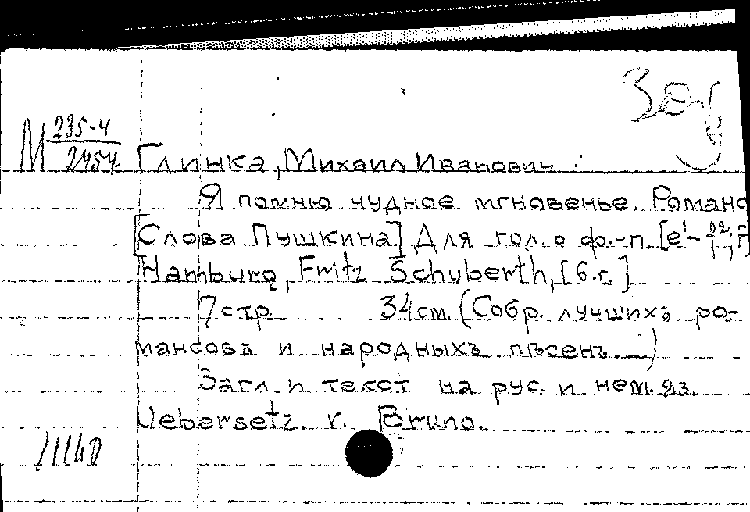 М 235-4
2454 Глинка, Михаил Иванович
Я помню чудное мгновенье. Романс
[Слова Пушкина] Для гол. с ф.-п. [e'-
Hamburg, Fritz Schuberth, [б.г.]
7 стр. 34 см. (Собр. лучшихъ ро-
мансовъ и народныхъ пѣсенъ)
Загл. и текст на рус. и нем. яз.
Uebersetz. v. Bruno.